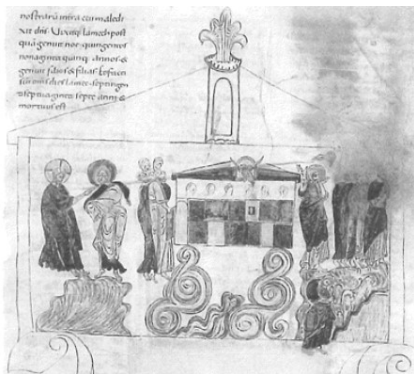 nostrarū in tra cui maledi
xit dns. Vixitq; lamech post
quā genuit noe. quingentos
nonaginta quinq; annos &
genuit filios & filias. &
dies lamec septingen
ti septuaginta septē anni &
mortuus est